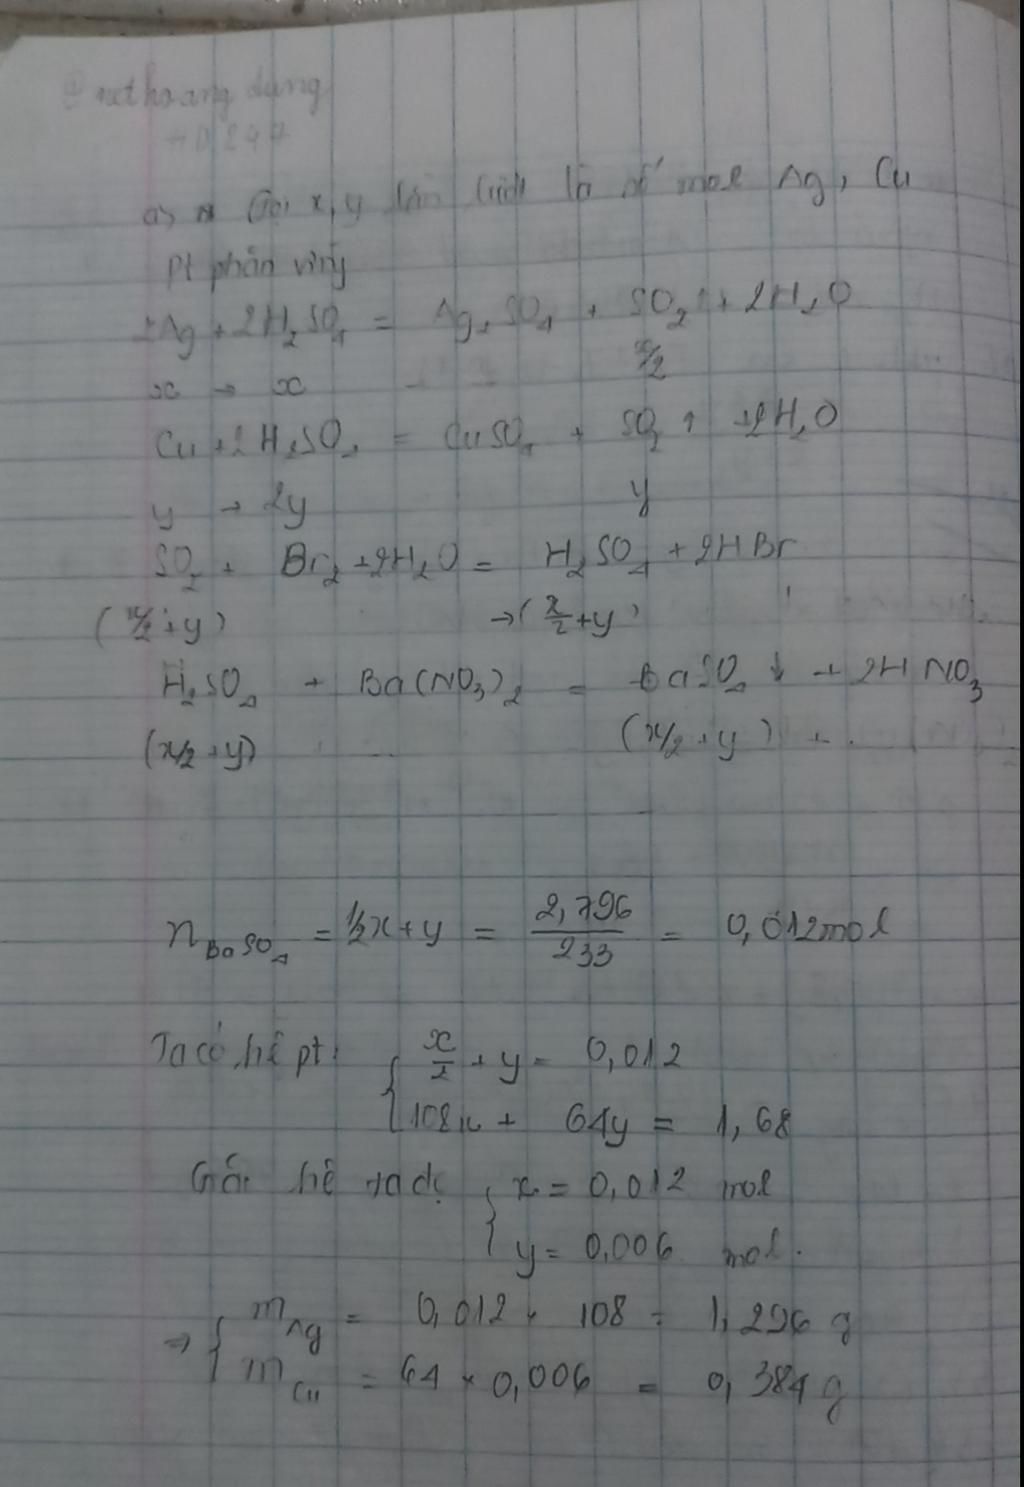 @ nethoangdung
HD247
a, Gọi x, y lần lượt là số mol Ag, Cu
Pt phản ứng
2Ag + 2H₂SO₄ = Ag₂SO₄ + SO₂↑ + 2H₂O
x → x x/2
Cu + 2H₂SO₄ = CuSO₄ + SO₂↑ + 2H₂O
y → 2y y
SO₂ + Br₂ + 2H₂O = H₂SO₄ + 2HBr
(x/2 + y) → (x/2 + y)
H₂SO₄ + Ba(NO₃)₂ = BaSO₄↓ + 2HNO₃
(x/2 + y) (x/2 + y)
n BaSO₄ = ½x + y = 2,796/233 = 0,012mol
Ta có hệ pt: { x/2 + y = 0,012
108x + 64y = 1,68
Giải hệ ta đc { x = 0,012 mol
y = 0,006 mol.
⇒ { m Ag = 0,012 × 108 = 1,296 g
m Cu = 64 × 0,006 = 0,384 g